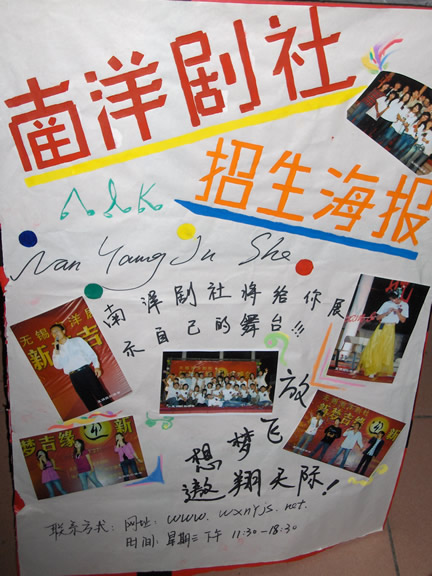 南洋剧社
招生海报
Nan Yang Ju She
南洋剧社将给你展
示自己的舞台!!!
放飞梦想
遨翔天际!
无锡
新吉
梦吉缘 新
联系方式: 网址: www.wxnyjs.net.
时间: 星期三下午 11:30-18:30